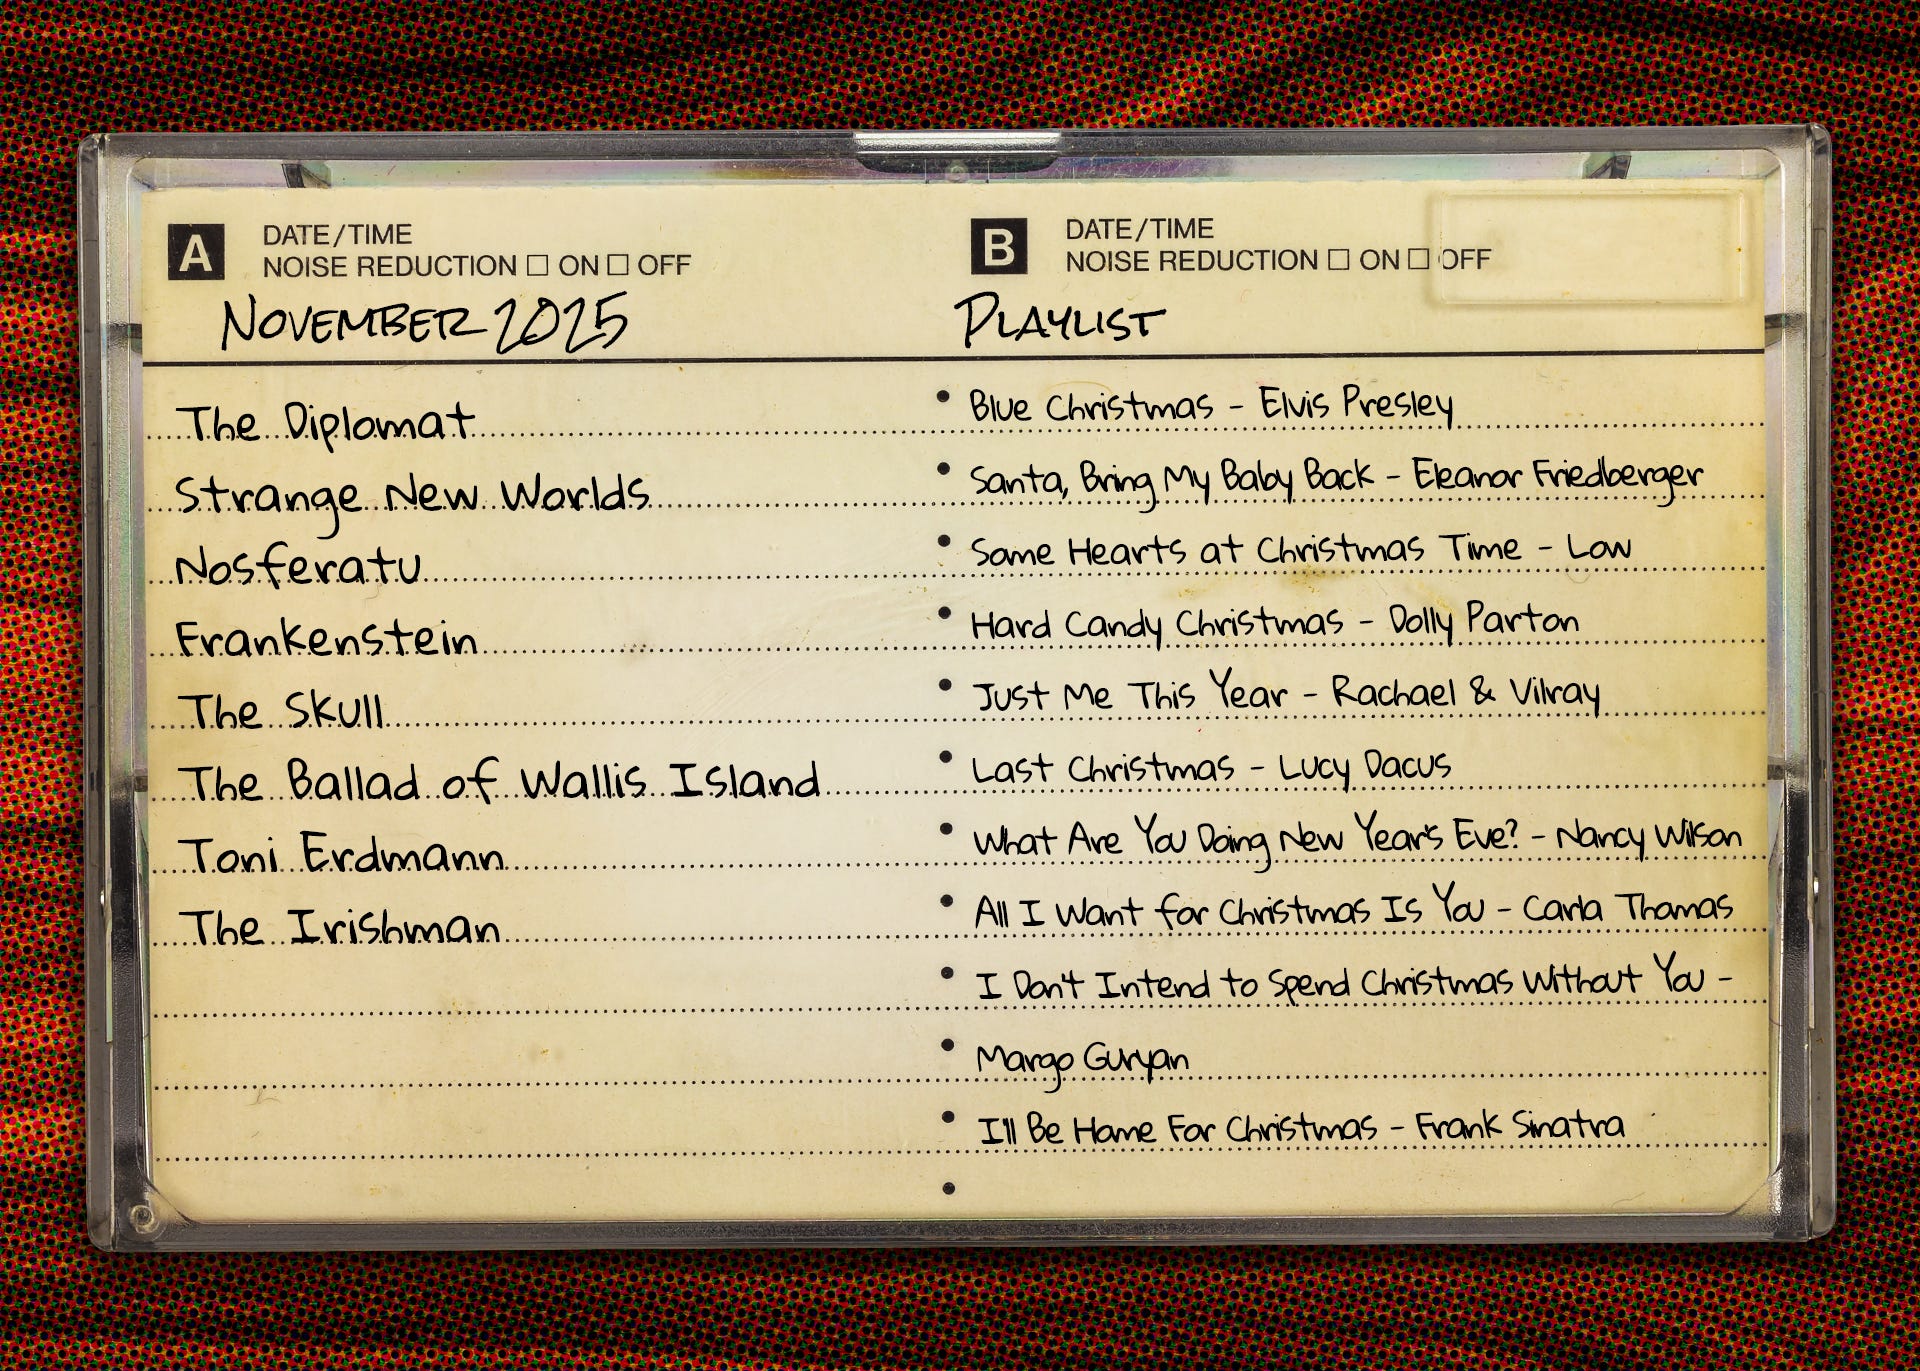 A DATE/TIME
NOISE REDUCTION □ ON □ OFF
NOVEMBER 2025
The Diplomat
Strange New Worlds
Nosferatu
Frankenstein
The Skull
The Ballad of Wallis Island
Toni Erdmann
The Irishman
B DATE/TIME
NOISE REDUCTION □ ON □ OFF
PLAYLIST
• Blue Christmas - Elvis Presley
• Santa, Bring My Baby Back - Eleanor Friedberger
• Some Hearts at Christmas Time - Low
• Hard Candy Christmas - Dolly Parton
• Just Me This Year - Rachael & Vilray
• Last Christmas - Lucy Dacus
• What Are You Doing New Year's Eve? - Nancy Wilson
• All I Want for Christmas Is You - Carla Thomas
• I Don't Intend to Spend Christmas Without You -
• Margo Guryan
• I'll Be Home For Christmas - Frank Sinatra
•